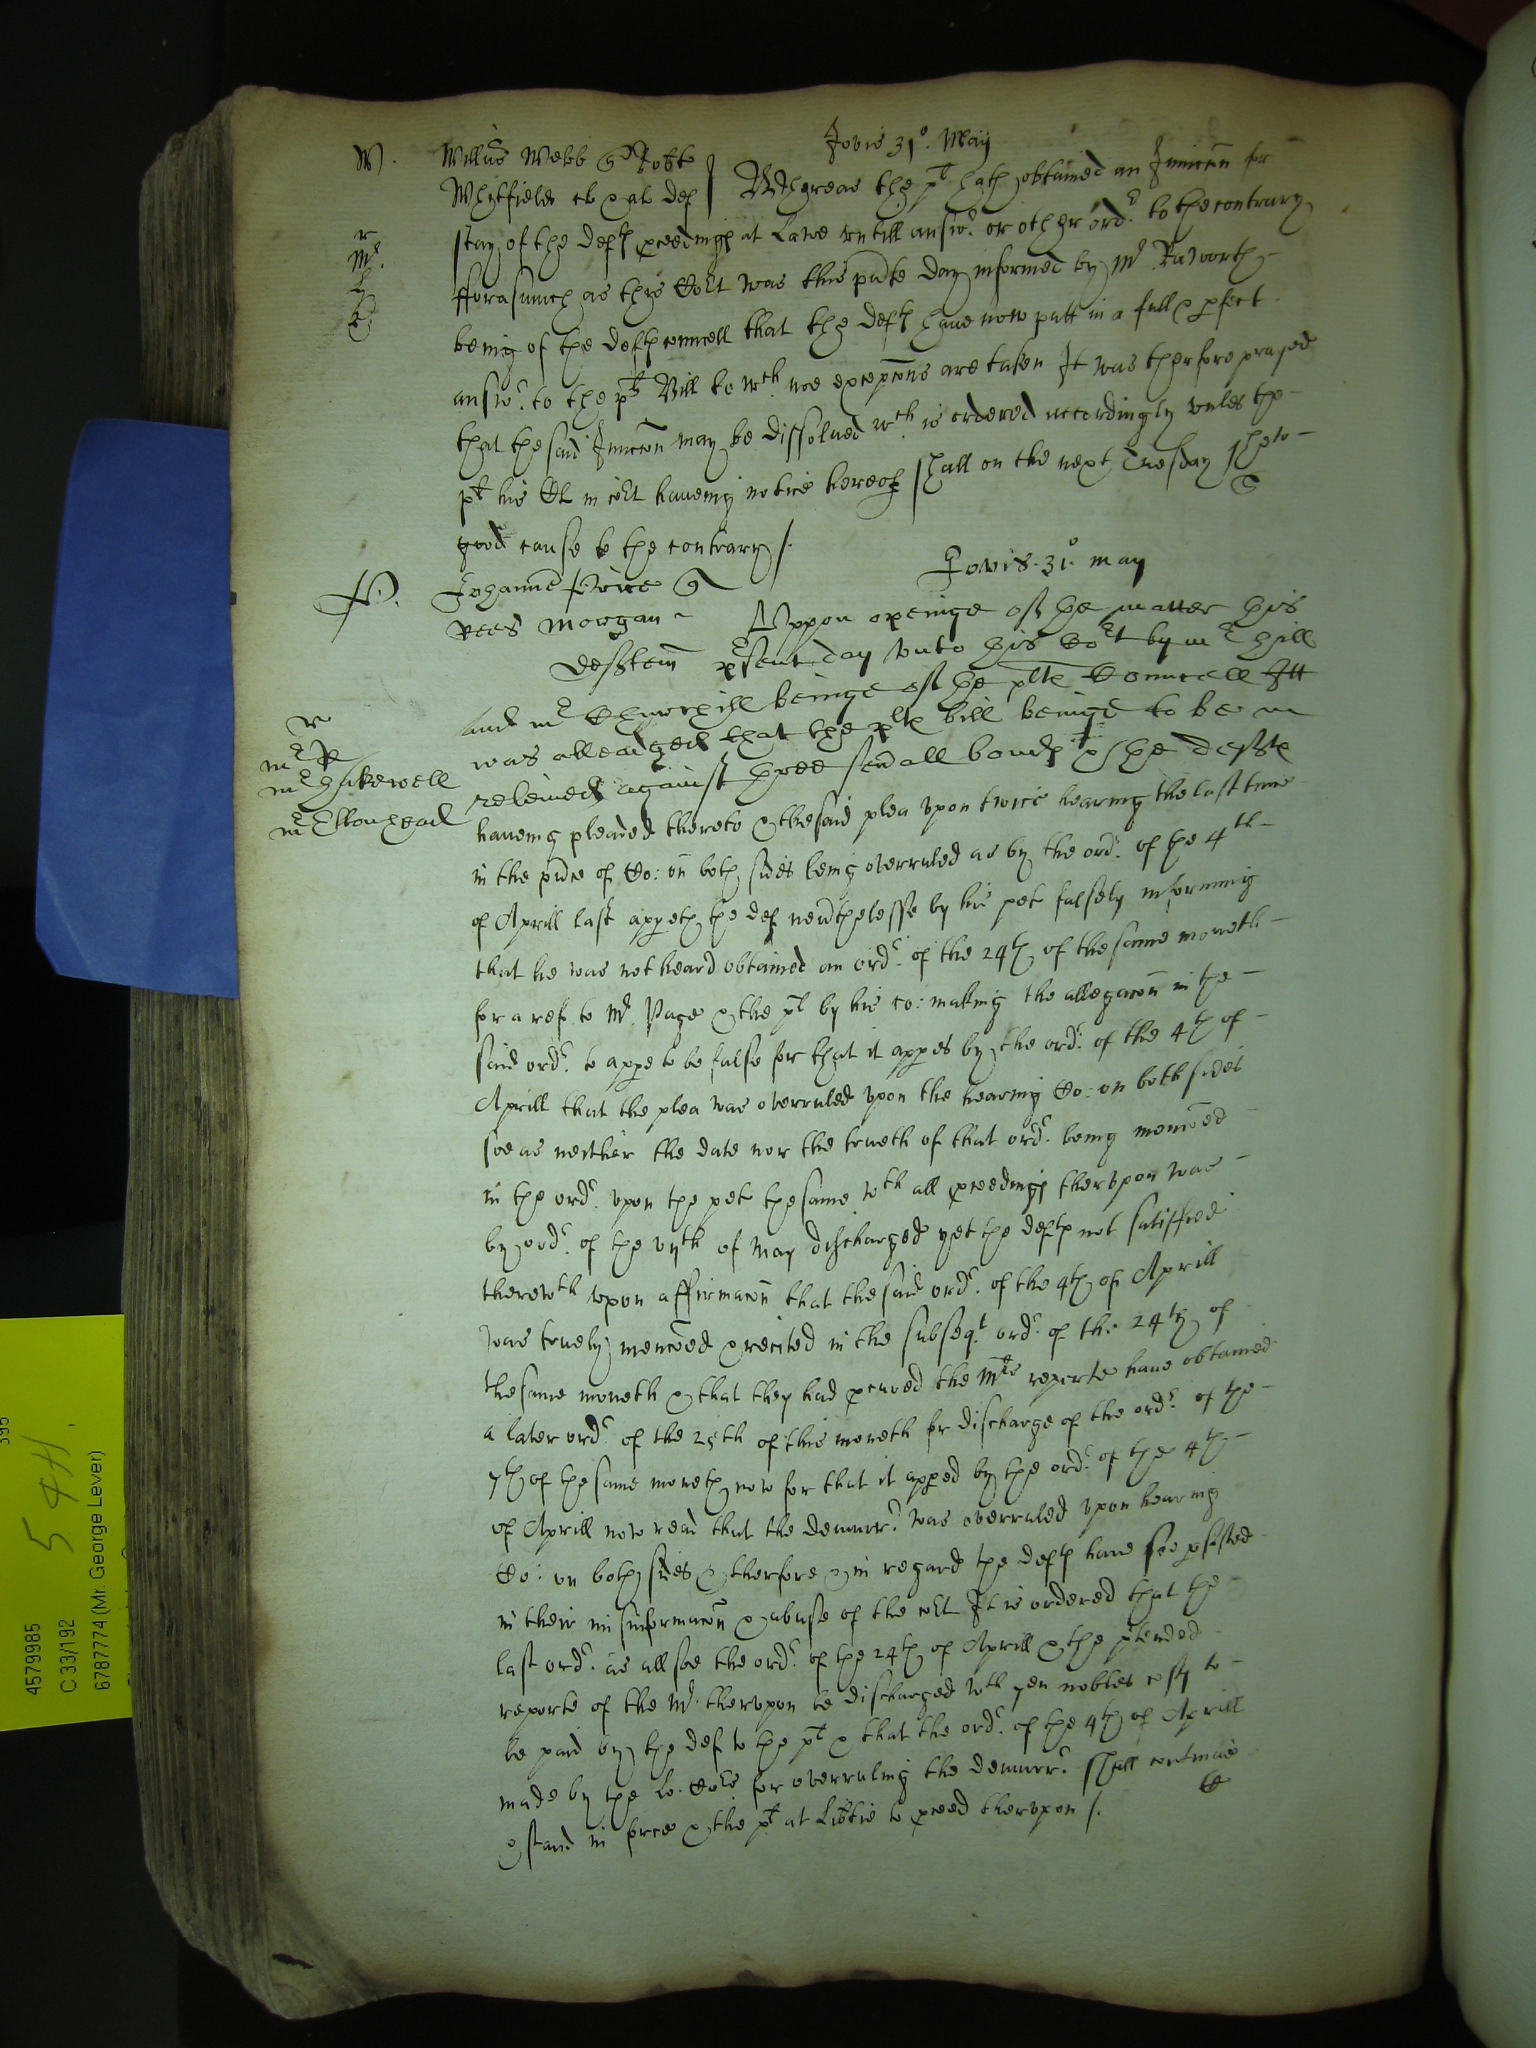 Jovis 31° May
W. Willus Webb q Robte
Whitfielde et al def Whereas the plt hath obtained an Iniuncon for
stay of the defts proceedings at Lawe untill answr. or other ordr. to the contrary
r
Mr. fforasmuch as this Cort was this pnte day informed by Mr Raworth
being of the defts councell that the defts have now putt in a full & perfect
answr. to the plts Bill to wch noe excepcons are taken It was therfore prayed
that the said Iniuncon may be dissolved wch is ordered accordingly unles the
plt his Cl in cort haveing notice hereof shall on the next Tuesday shew
good cause to the contrary /.
Jovis. 31° may
P. Johannes Price q
Rees Morgan Uppon openinge of the matter this
defftem present day unto this Cort by mr hill
and mr beinge of the plts Councell Itt
r
was alleadged that the plts bill beinge to be
mr P
mr hakewell releived against three severall bonds & the deffts
mr
haveing pleaded thereto & the said plea upon twice hearing the last time
in the pnce of Co: on both sides being overruled as by the ordr. of the 4th
of Aprill last appeth the def neverthelesse by his pet falsely informing
that he was not heard obtained an ordr. of the 24th of the same moneth
for a ref to Mr. Page & the plt by his co: making the allegacon in the
said ordr. to appe to be false for that it appes by the ordr. of the 4th of
Aprill that the plea was overruled upon the hearing Co: on both sides
soe as neither the date nor the trueth of that ordr. being menconed
in the ordr. upon the pet the same wth all proceedings therupon was
by ordr. of the vijth of May discharged yet the defts not satisfied
therewth upon affirmacon that the said ordr. of the 4th of Aprill
was truely menconed & recited in the subseqt ordr. of the 24th of
the same moneth & that they had procured the Mrs reporte have obtained
a later ordr. of the 25th of this moneth for discharge of the ordr. of the
7th of the same moneth now for that it apped by the ordr. of the 4th
of Aprill now read that the demurrr. was overruled upon hearing
Co: on both sides & therfore & in regard the defts have soe psisted
in their misinformacon & abuse of the cort It is ordered that the
last ordr. as allsoe the ordr. of the 24th of Aprill & the ptended
reporte of the Mr. therupon be discharged wth nobles costs to
be paid by the def to the plt & that the ordr. of the 4th of Aprill
made by the Lo. for overruling the demurrr. shall continue
& stand in force & the plt at Libtie to proceed therupon /.
5 411
395
4579985
C 33/192
6787774 (Mr. George Lever)